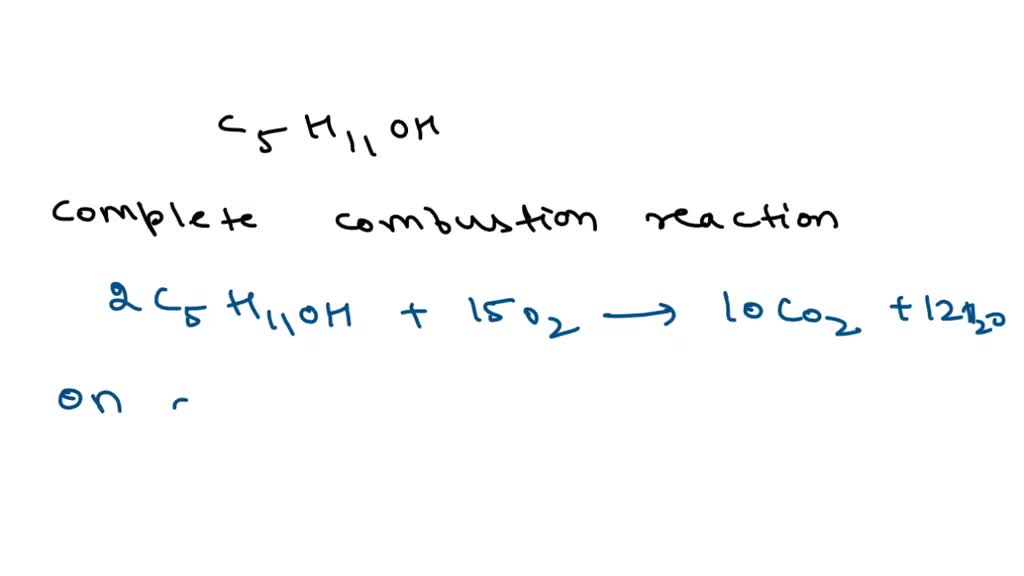 C₅H₁₁OH
complete combustion reaction
2C₅H₁₁OH + 15O₂ → 10CO₂ + 12H₂O
on